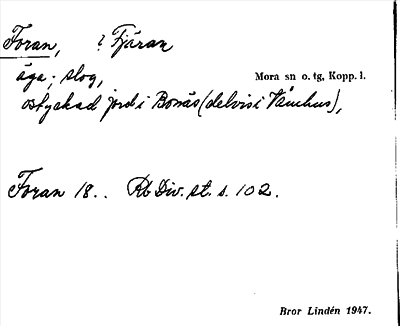 Foran, ? Fjäran
äga; slog,
Mora sn o. tg, Kopp. l.
ostyckad jord i Bonäs (delvis i Våmhus),
Foran 18.. Rb Div. st. s. 102.
Bror Lindén 1947.